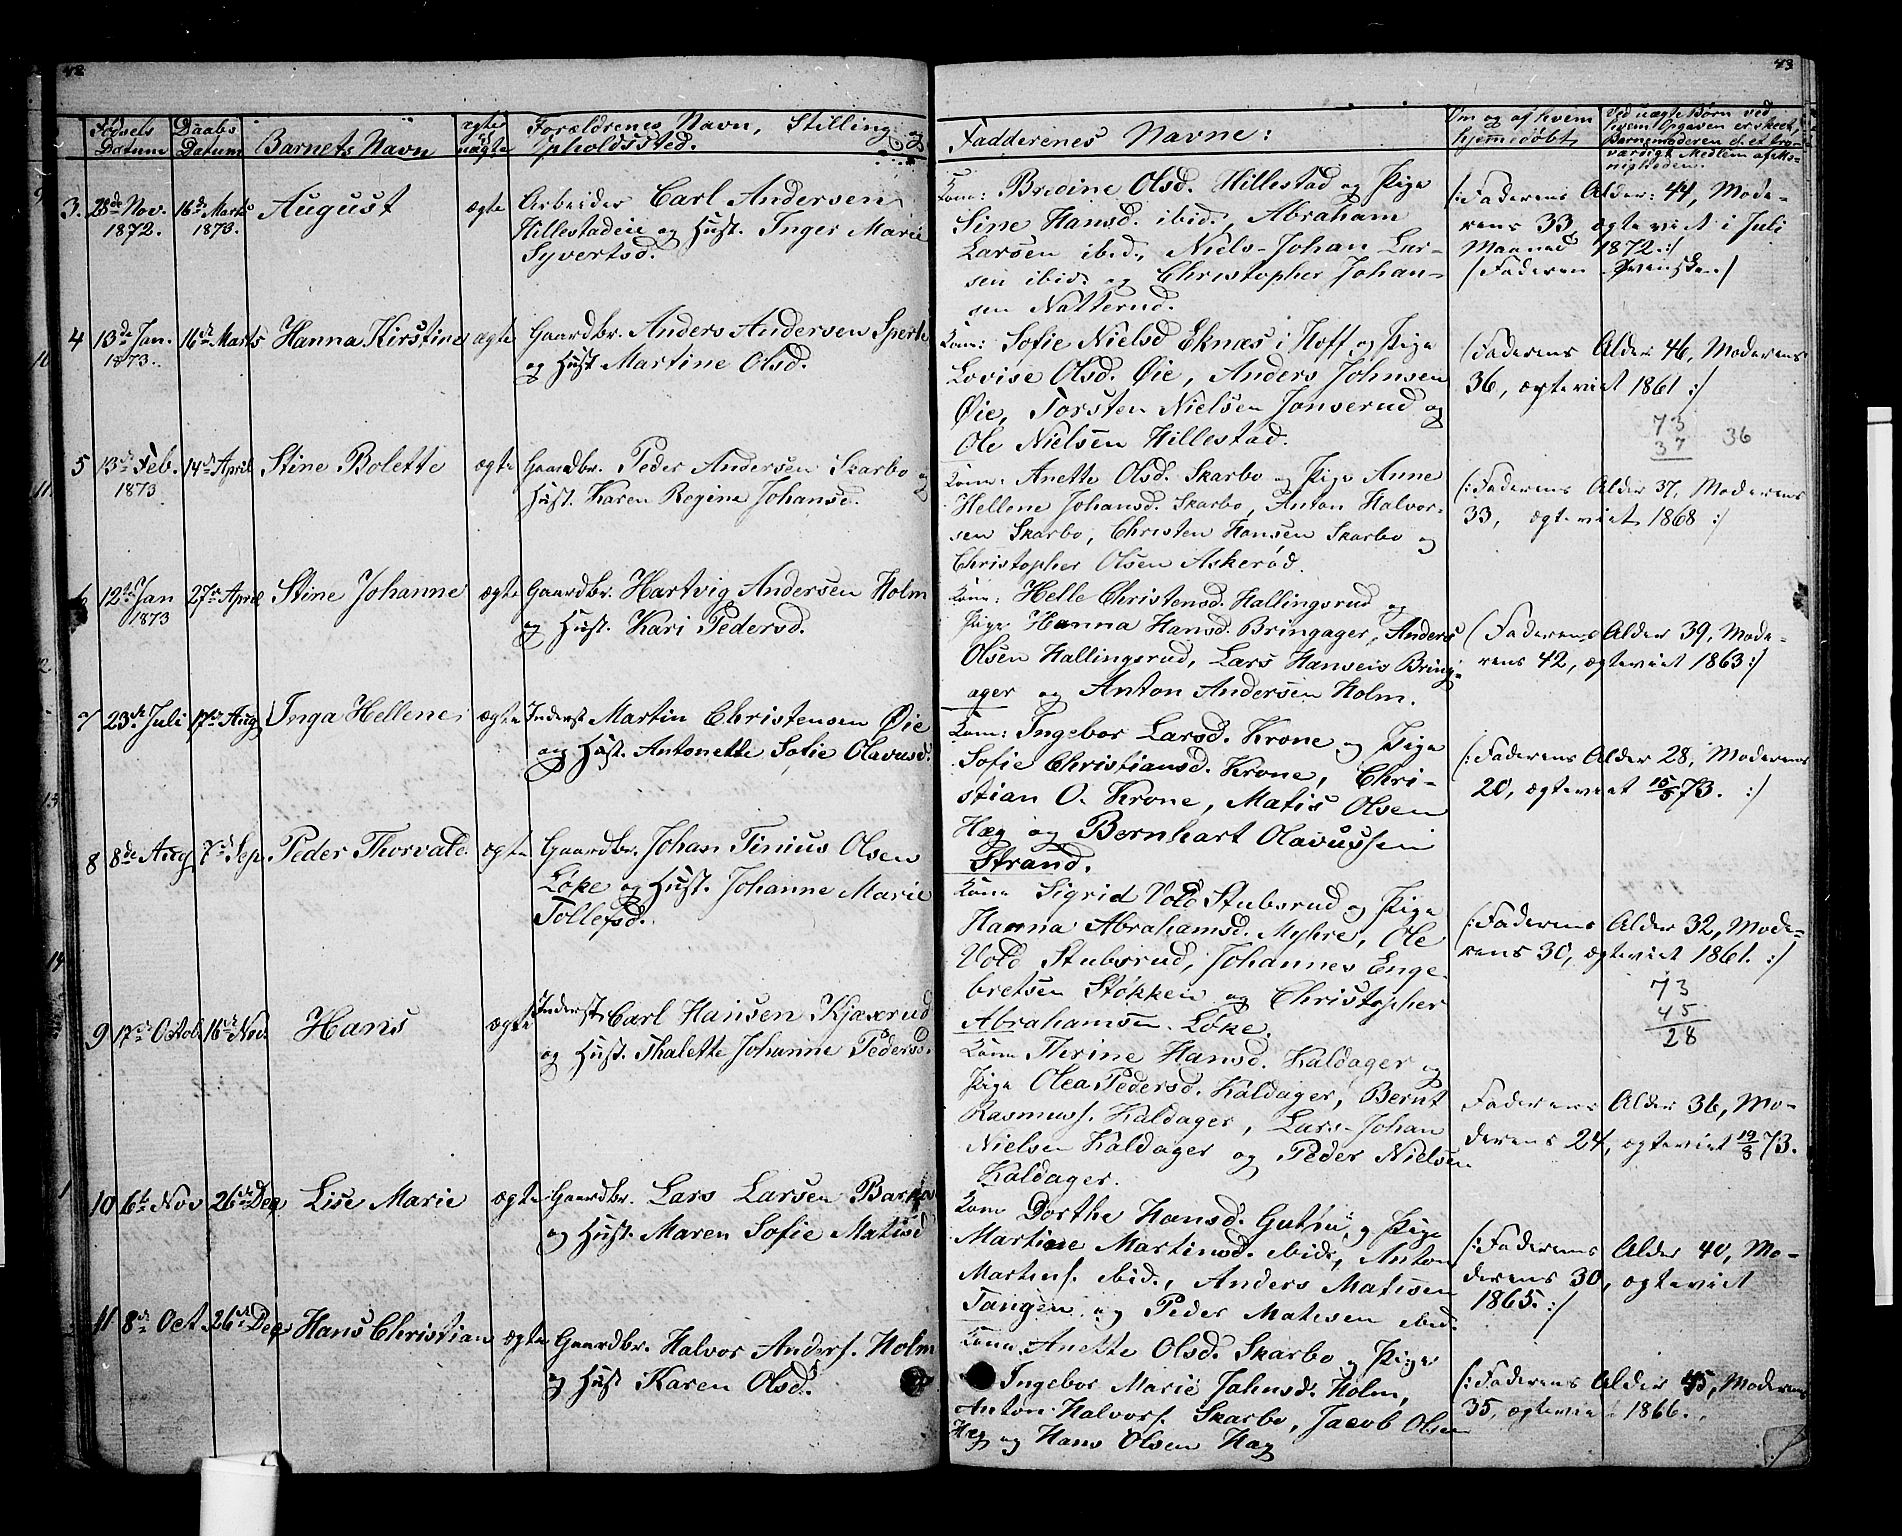 42
Fødsels Datum
Daabs Datum
Barnets Navn
ægte el. uægte
Forældrenes Navn, Stilling og
Opholdssted.
3. 28de Nov. 1872. 16de Marts 1873. August ægte Arbeider Carl Andersen
Hillestadeie og Hust. Inger Marie
Syvertsd.
4 13de Jan. 1873. 16de Marts Hanna Kirstine ægte Gaardbr. Anders Andersen Sperle
og Hust Martine Olsd.
5 13de Feb. 1873 14de April Stine Bolette ægte Gaardbr. Peder Andersen Skarbo og
Hust. Karen Regine Johansd.
6 12te Jan 1873 27de April Stine Johanne ægte Gaardbr. Hartvig Andersen Holm
og Hust. Kari Pedersd.
7 23de Juli 17de Aug Inga Hellene ægte Inderst Martin Christensen Øie
og Hust. Antonette Sofie Olavusd.
8 8de Aug 7de Sep. Peder Thorvald ægte Gaardbr. Johan Tinius Olsen
Løke og Hust. Johanne Marie
Tollefsd.
9 17de Octob. 16de Nov. Hans ægte Inderst Carl Hansen Kjærrud
og Hust. Thalette Johanne Pedersd.
10 6te Nov 26de Dec Lise Marie ægte Gaardbr. Lars Larsen
og Hust. Maren Sofie Matisd
11 8de Oct. 26de Dec Hans Christian ægte Gaardbr. Halvor Anders. Holm
og Hust Karen Olsd.
43
Fadderenes Navne:
Om og af hvem
hjemmedøbt
Ved uægte Børn ved
hvem Opgaven er skeet,
Barnemoderen el. et tro-
værdigt Medlem af Me-
nigheden.
Kone: Bredine Olsd. Hillestad og Pige
Sine Hansd. ibid., Abraham
Larsen ibid., Niels-Johan Lar-
sen ibid. og Christopher Johan-
sen Natterud.
/: Faderens Alder: 44, Mode-
rens 33, ægteviet i Juli
Maaned 1872 :/
/ Faderen Svenske /
Kone: Sofie Nielsd Eknæs i Hoff og Pige
Lovise Olsd. Øie, Anders Johnsen
Øie, Torsten Nielsen Jonserud og
Ole Nielsen Hillestad.
/ Faderens Alder 46, Moderens
36, ægteviet 1861 :/
73
37 36
Kone: Anette Olsd. Skarbo og Pige Anne
Hellene Johansd. Skarbo, Anton Halvor-
sen Skarbo, Christen Hansen Skarbo og
Christopher Olsen Askerød.
/: Faderens Alder 37, Moderens
33, ægteviet 1868 :/
Kone: Helle Christensd. Hallingsrud og
Pige Hanna Hansd. Bringager, Anders
Olsen Hallingsrud, Lars Hansen Bring-
ager og Anton Andersen Holm.
/ Faderens Alder 39, Mode-
rens 42, ægteviet 1863 :/
Kone: Ingebor Larsd. Krone og Pige
Sofie Christiansd. Krone, Chri-
stian O. Krone, Matis Olsen
Hæg og Bernhart Olavussen
Strand.
/: Faderens Alder 28, Moderens
20, ægteviet 15/5 73. :/
Kone Sigrid Vold Stubsrud og Pige
Hanna Abrahamsd. Myhre, Ole
Vold Stubsrud, Johannes Enge-
bretsen Støkken og Christopher
Abrahamsen Løke.
/: Faderens Alder 32, Mode-
rens 30, ægteviet 1861. :/
73
45
28
Kone Therine Hansd. Kaldager og
Pige Olea Pedersd. Kaldager, Bernt
Rasmuss. Kaldager, Lars-Johan
Nielsen Kaldager og Peder Nielsen
Kaldager.
Faderens Alder 36, Mo-
derens 24, ægteviet 19/8 73.
Kone Dorthe Hansd. og Pige
Martine Martinsd. ibid, Anton
Martins. ibid., Anders Matisen
Tangen og Peder Matisen ibid.
/: Faderens Alder 40, Mo-
derens 30, ægteviet
1865. :/
Kone Anette Olsd. Skarbo og Pige
Ingebor Marie Jahnsd. Holm,
Anton Halvors. Skarbo, Jacob Olsen
Hæg og Hans Olsen Hæg
/: Faderens Alder 45, Moderens
35, ægteviet 1866.